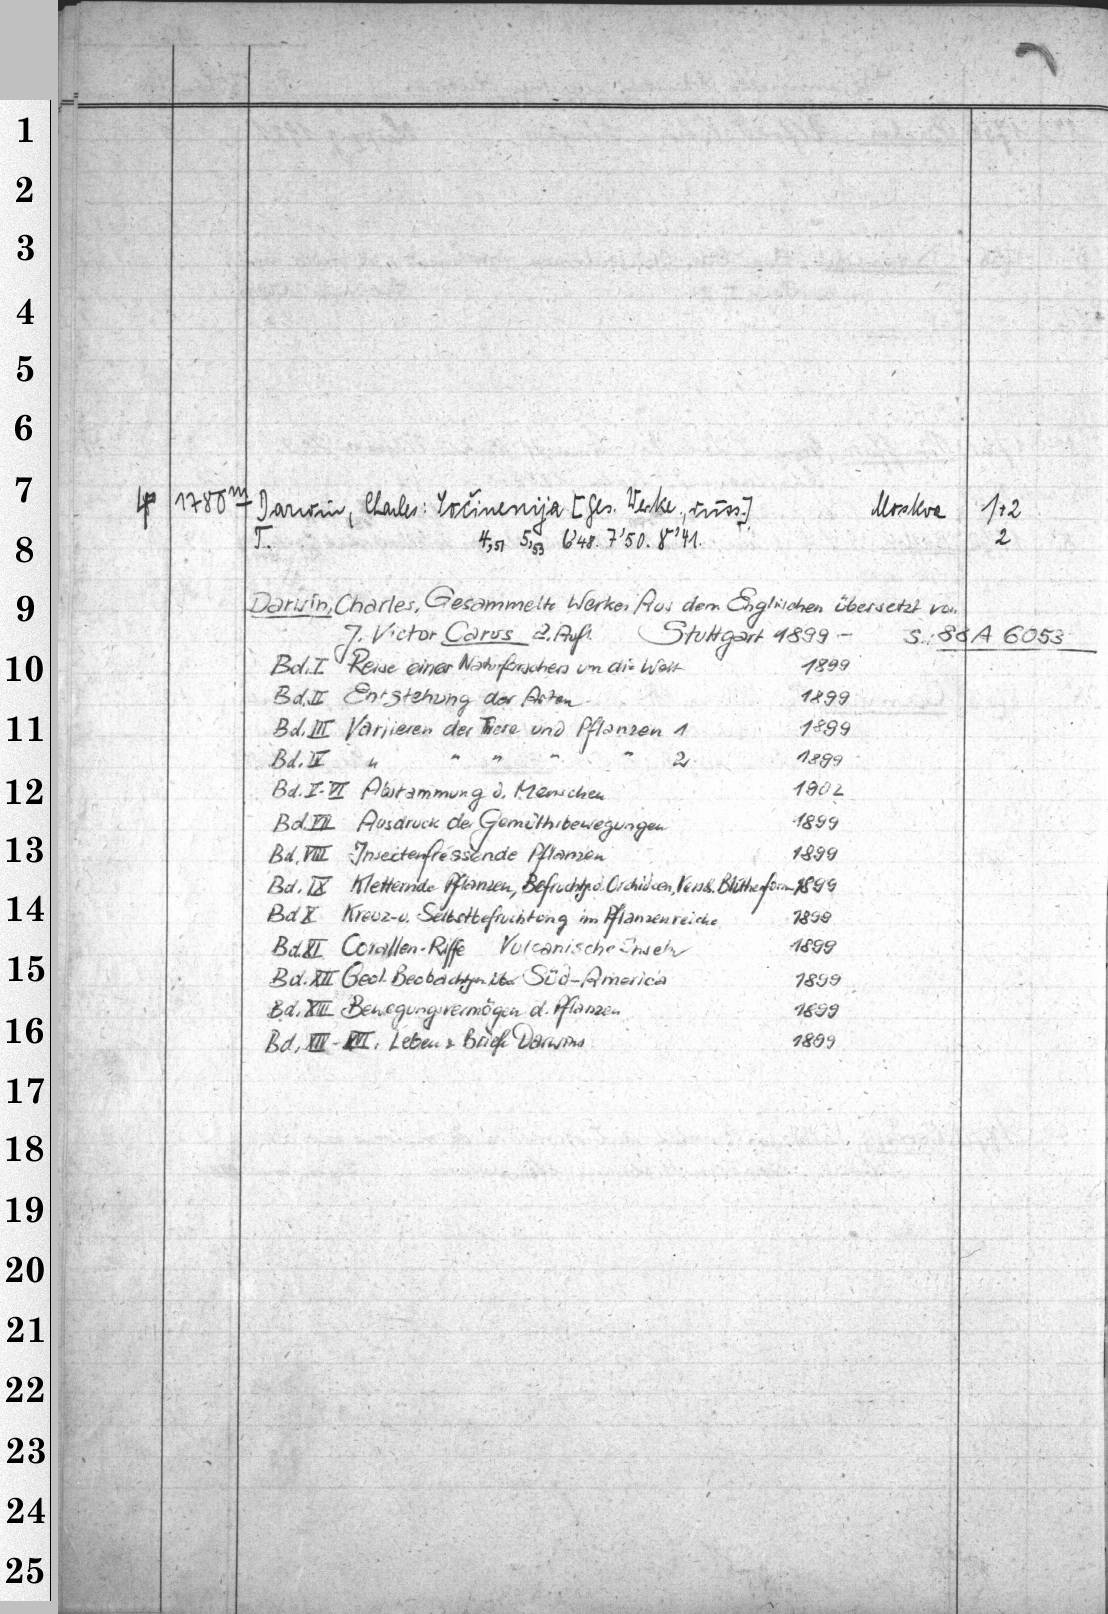 1
2
3
4
5
6
7 4° 1780m Darwin, Charles: Sočinenija [Ges. Werke, russ.] Moskva 1+2
8 T. 4,51 5,53 6'48. 7'50. 8'41. 2
9 Darwin, Charles, Gesammelte Werke. Aus dem Englischen übersetzt von
J. Victor Carus 2. Aufl. Stuttgart 1899 – s.: 88 A 6053
10 Bd. I Reise eines Naturforschers um die Welt 1899
Bd. II Entstehung der Arten 1899
11 Bd. III Variieren der Tiere und Pflanzen 1 1899
Bd. IV " " " " " 2 1899
12 Bd. V-VI Abstammung d. Menschen 1902
Bd. VII Ausdruck der Gemüthsbewegungen 1899
13 Bd. VIII Insectenfressende Pflanzen 1899
Bd. IX Kletternde Pflanzen, Befruchtg. d. Orchideen, Versch. Blüthenform. 1899
14 Bd X Kreuz- u. Selbstbefruchtung im Pflanzenreiche 1899
Bd. XI Corallen-Riffe Vulcanische Inseln 1899
15 Bd. XII Geol. Beobachtgn. über Süd-America 1899
Bd. XIII Bewegungsvermögen d. Pflanzen 1899
16 Bd. XIV - XVI. Leben & Briefe Darwins 1899
17
18
19
20
21
22
23
24
25